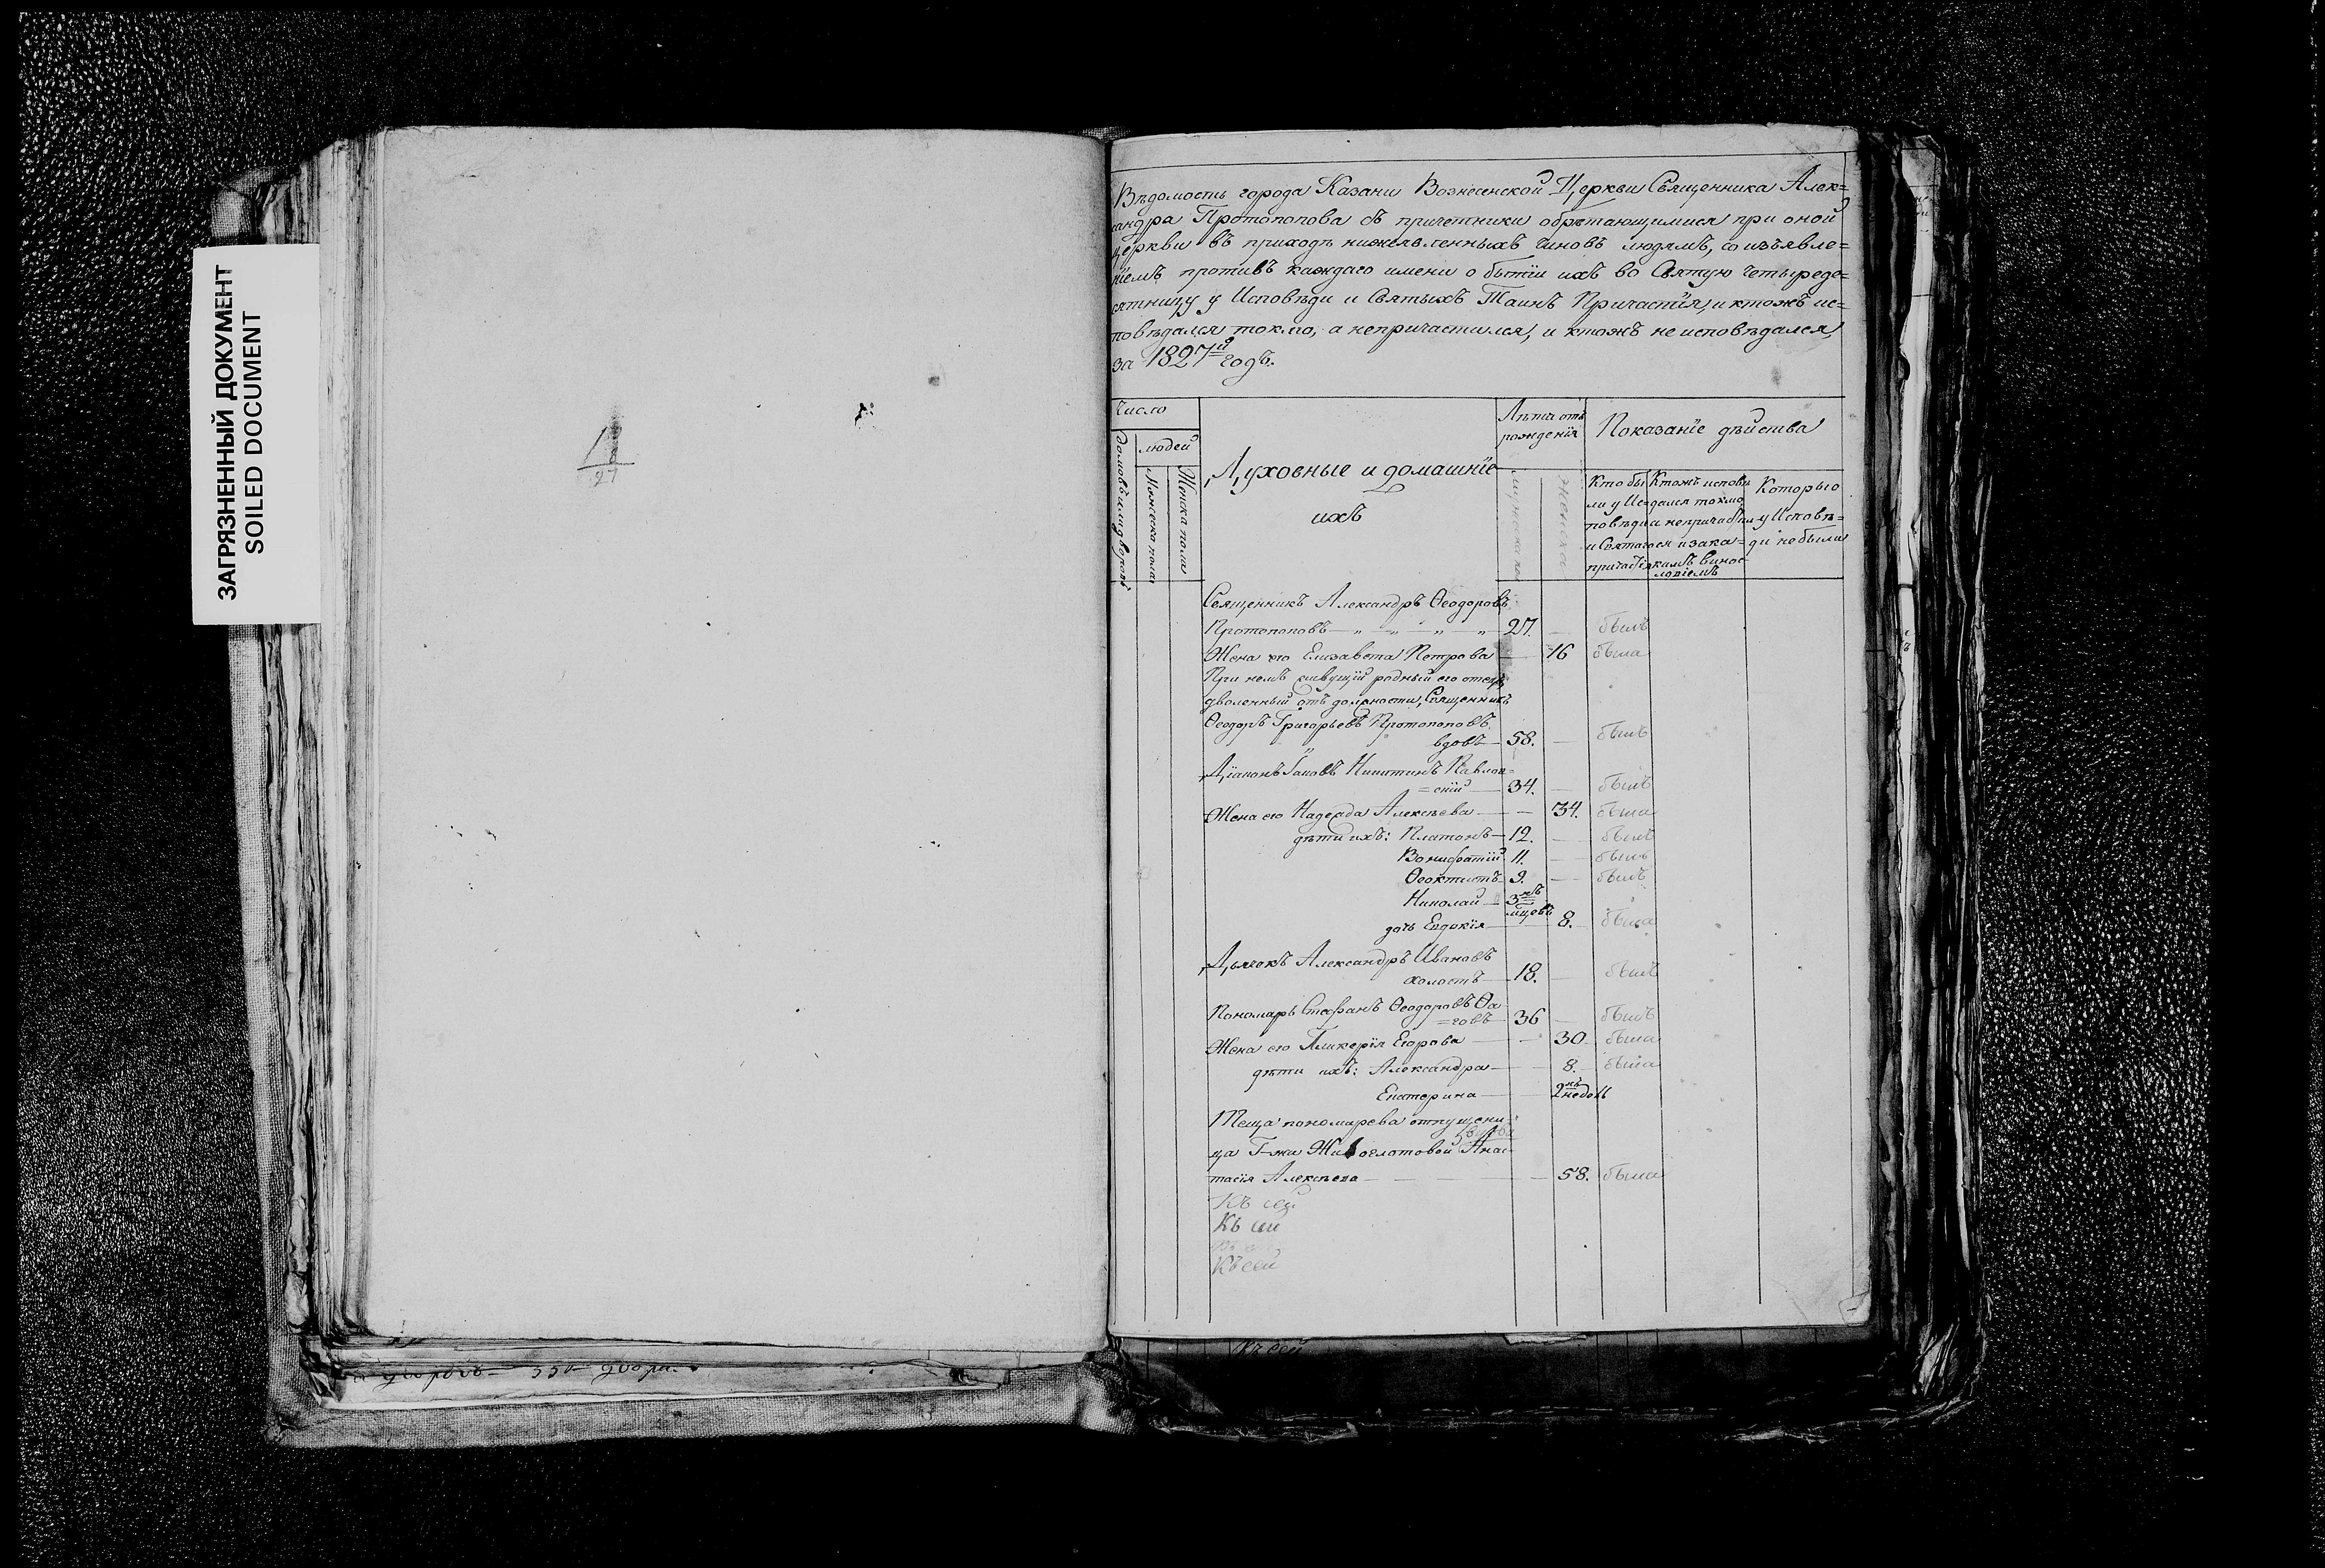 ЗАГРЯЗНЕННЫЙ ДОКУМЕНТ
SOILED DOCUMENT
1
27
Вѣдомость города Казани Вознесенской Церкви Священника Алек=
сандра Протопопова съ причетники обрѣтающимися при оной
Церкви въ приходѣ нижеявленныхъ чиновъ людямъ, со изъявле=
ніемъ противъ каждаго имени о бытіи ихъ во Святую четыреде=
сятницу у Исповѣди и Святыхъ Таинъ Причастія, и ктожъ ис=
повѣдался токмо, а непричастился, и ктожъ неисповѣдался,
за 1827й годъ.
Число
людей
домовъ или дворовъ
Мужеска пола
Женска пола
Духовные и домашніе
ихъ
Лѣта отъ
рожденія
мужеска по
женска
Показаніе дѣйства
Кто бы
ли у Ис
повѣди
и Святаго
причастія
Ктожъ исповѣ
дался токмо,
а непричасти
ся и зака=
кимъ винос
ловіемъ
Которые
у Исповѣ=
ди небыли
Священникъ Александръ Ѳеодоровъ
Протопоповъ — „ — „ — „ — „ 27. — былъ
Жена его Елизавета Петрова — 16 была
При немъ живущій родный его отецъ
уволенный отъ должности, Священникъ
Ѳеодоръ Григорьевъ Протопоповъ
вдовъ — 58. — былъ
Діаконъ Іаковъ Никитинъ Павлов=
=скій — 34. — былъ
Жена его Надежда Алексѣева — — 34. была
дѣти ихъ: Платонъ — 12. — былъ
Вонифатій 11. — былъ
Ѳеоктистъ 9. — былъ
Николай — 3хъ мцовъ
дочь Евдокія — 8. была
Дьячокъ Александръ Ивановъ
холостъ — 18. — былъ
Пономарь Стефанъ Ѳеодоровъ Ѳа
=говъ — 36 — былъ
Жена его Гликерія Егорова — — 30. была
дѣти ихъ: Александра — — 8. была
Екатерина — 2хъ недель
Теща пономарева отпущени
ца Г-жи Живоглотовой вдова Анас
тасія Алексѣева — — — 58. была
Къ сей
Къ сей
Къ сей
Къ сей